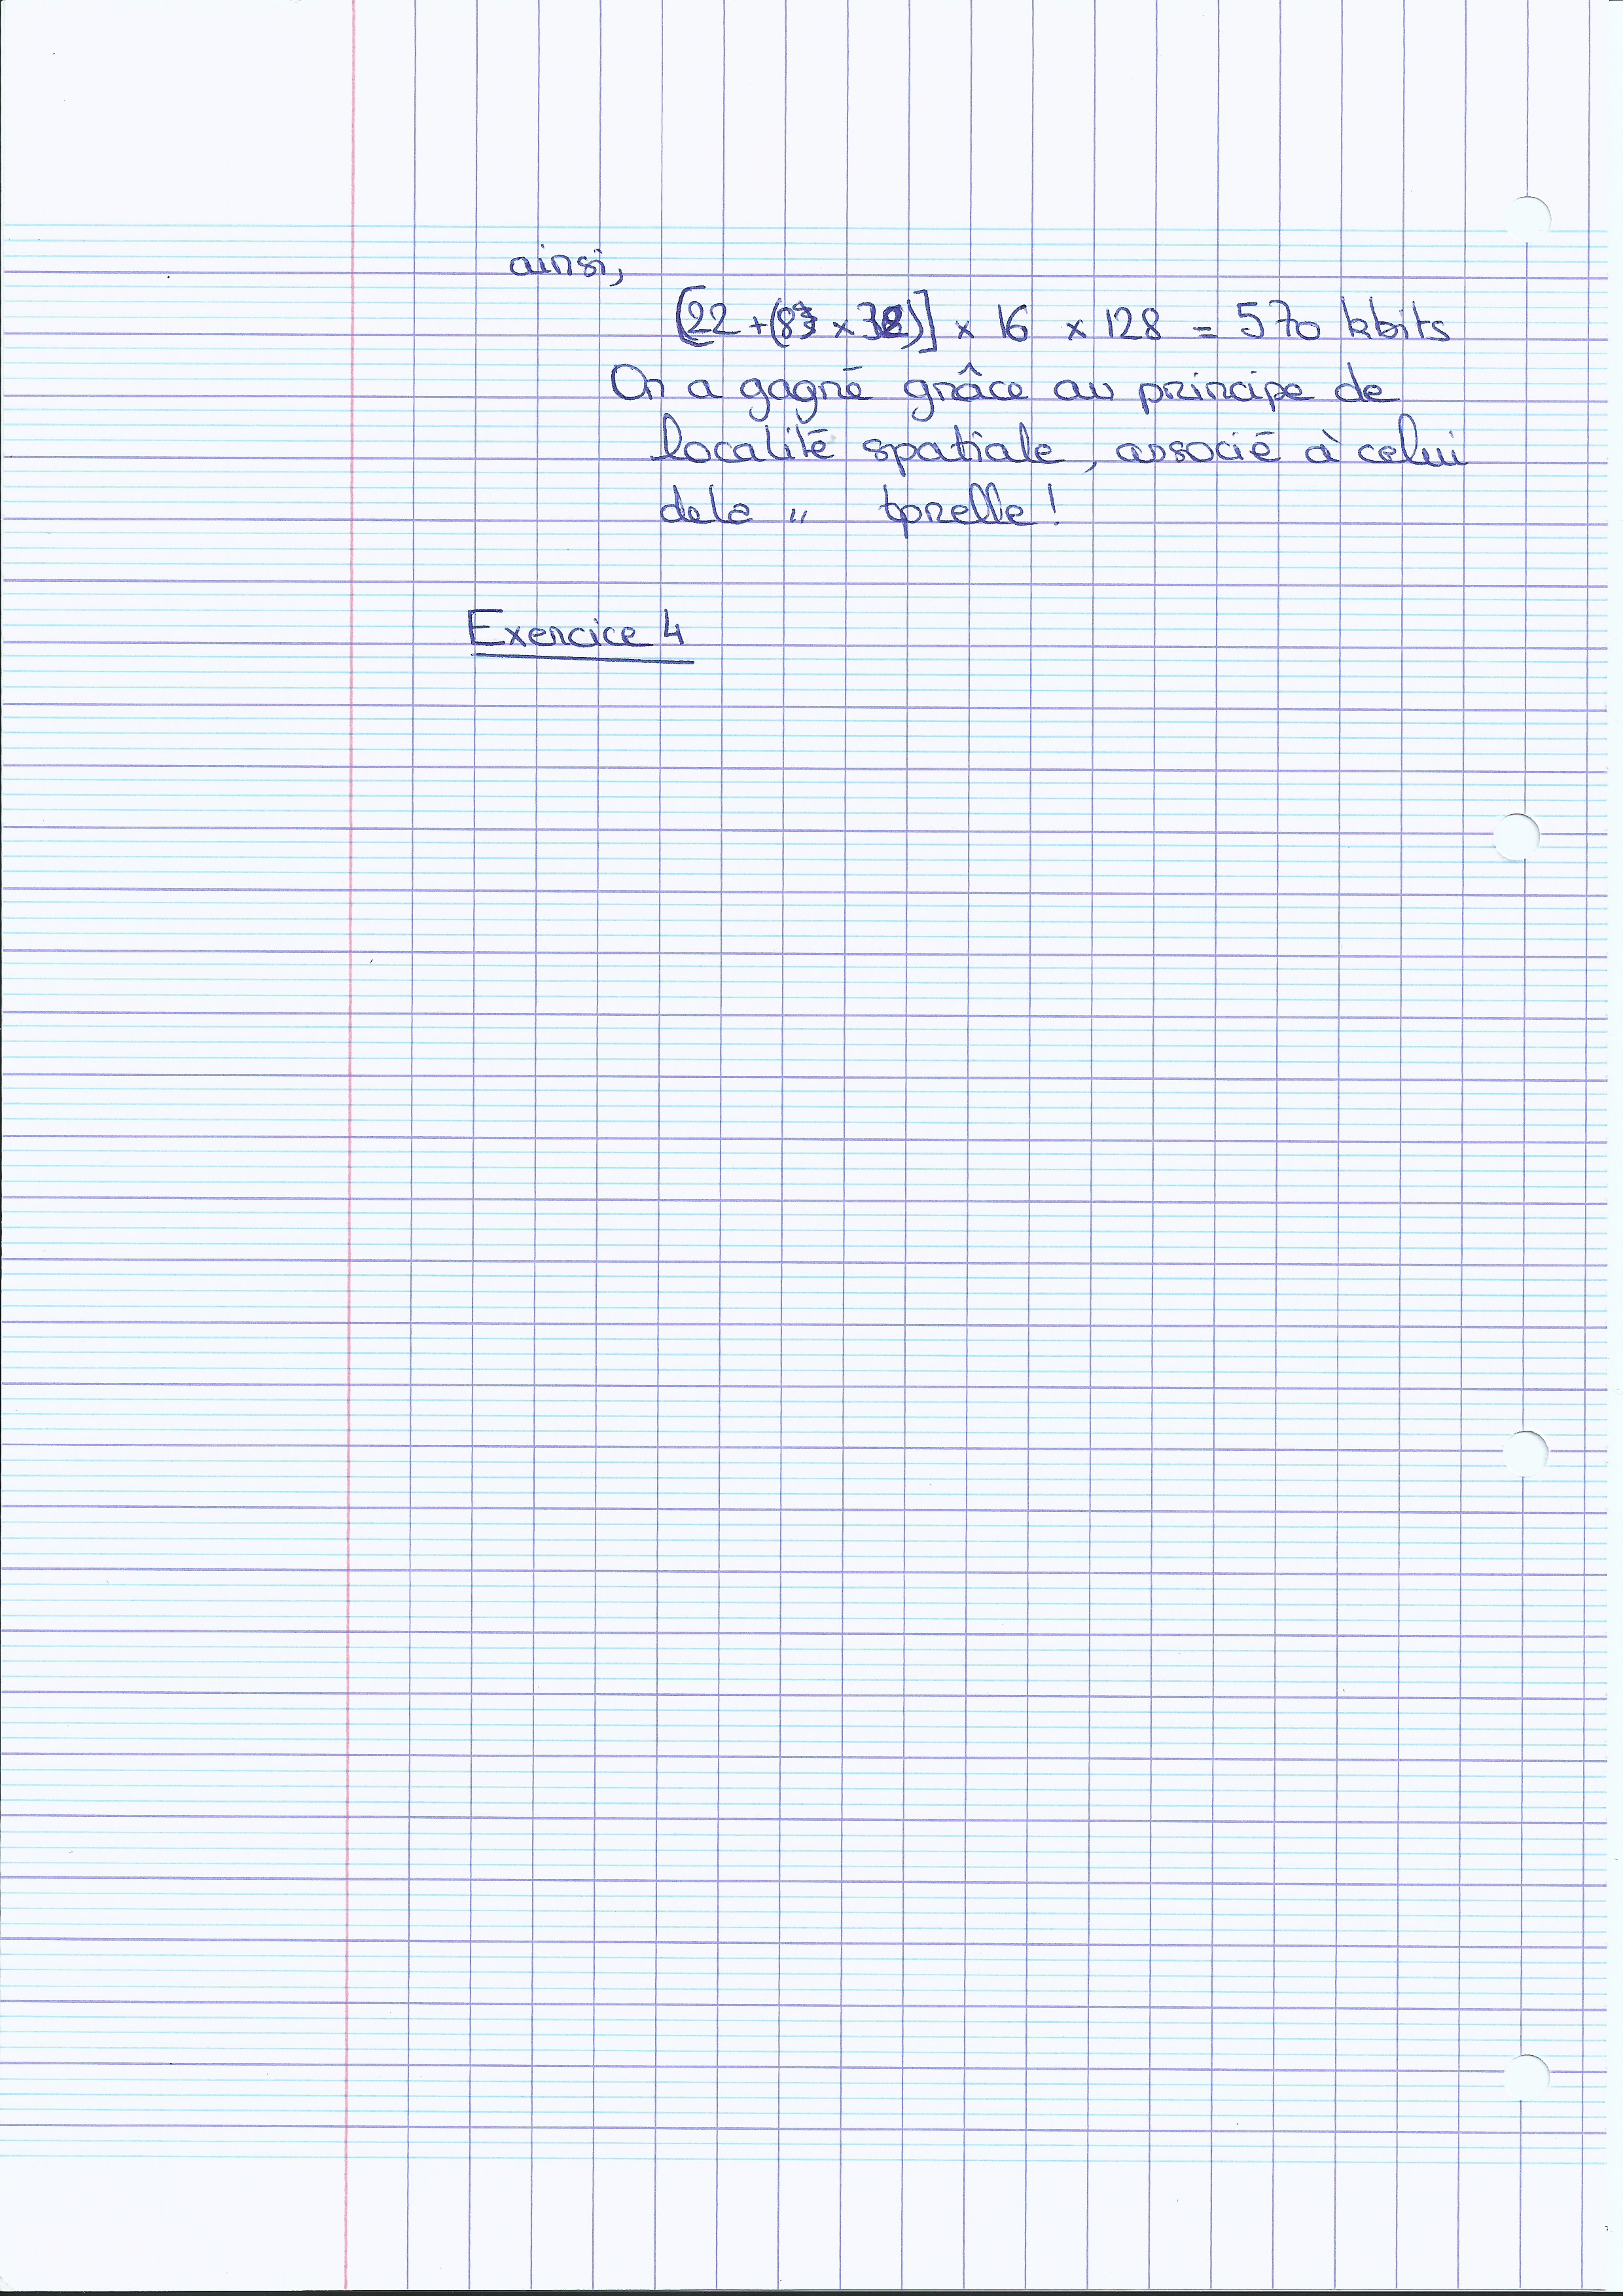 ainsi,
[22 + (8 × 32)] × 16 × 128 = 570 kbits
On a gagné grâce au principe de
localité spatiale, associé à celui
de la " tprelle !
Exercice 4